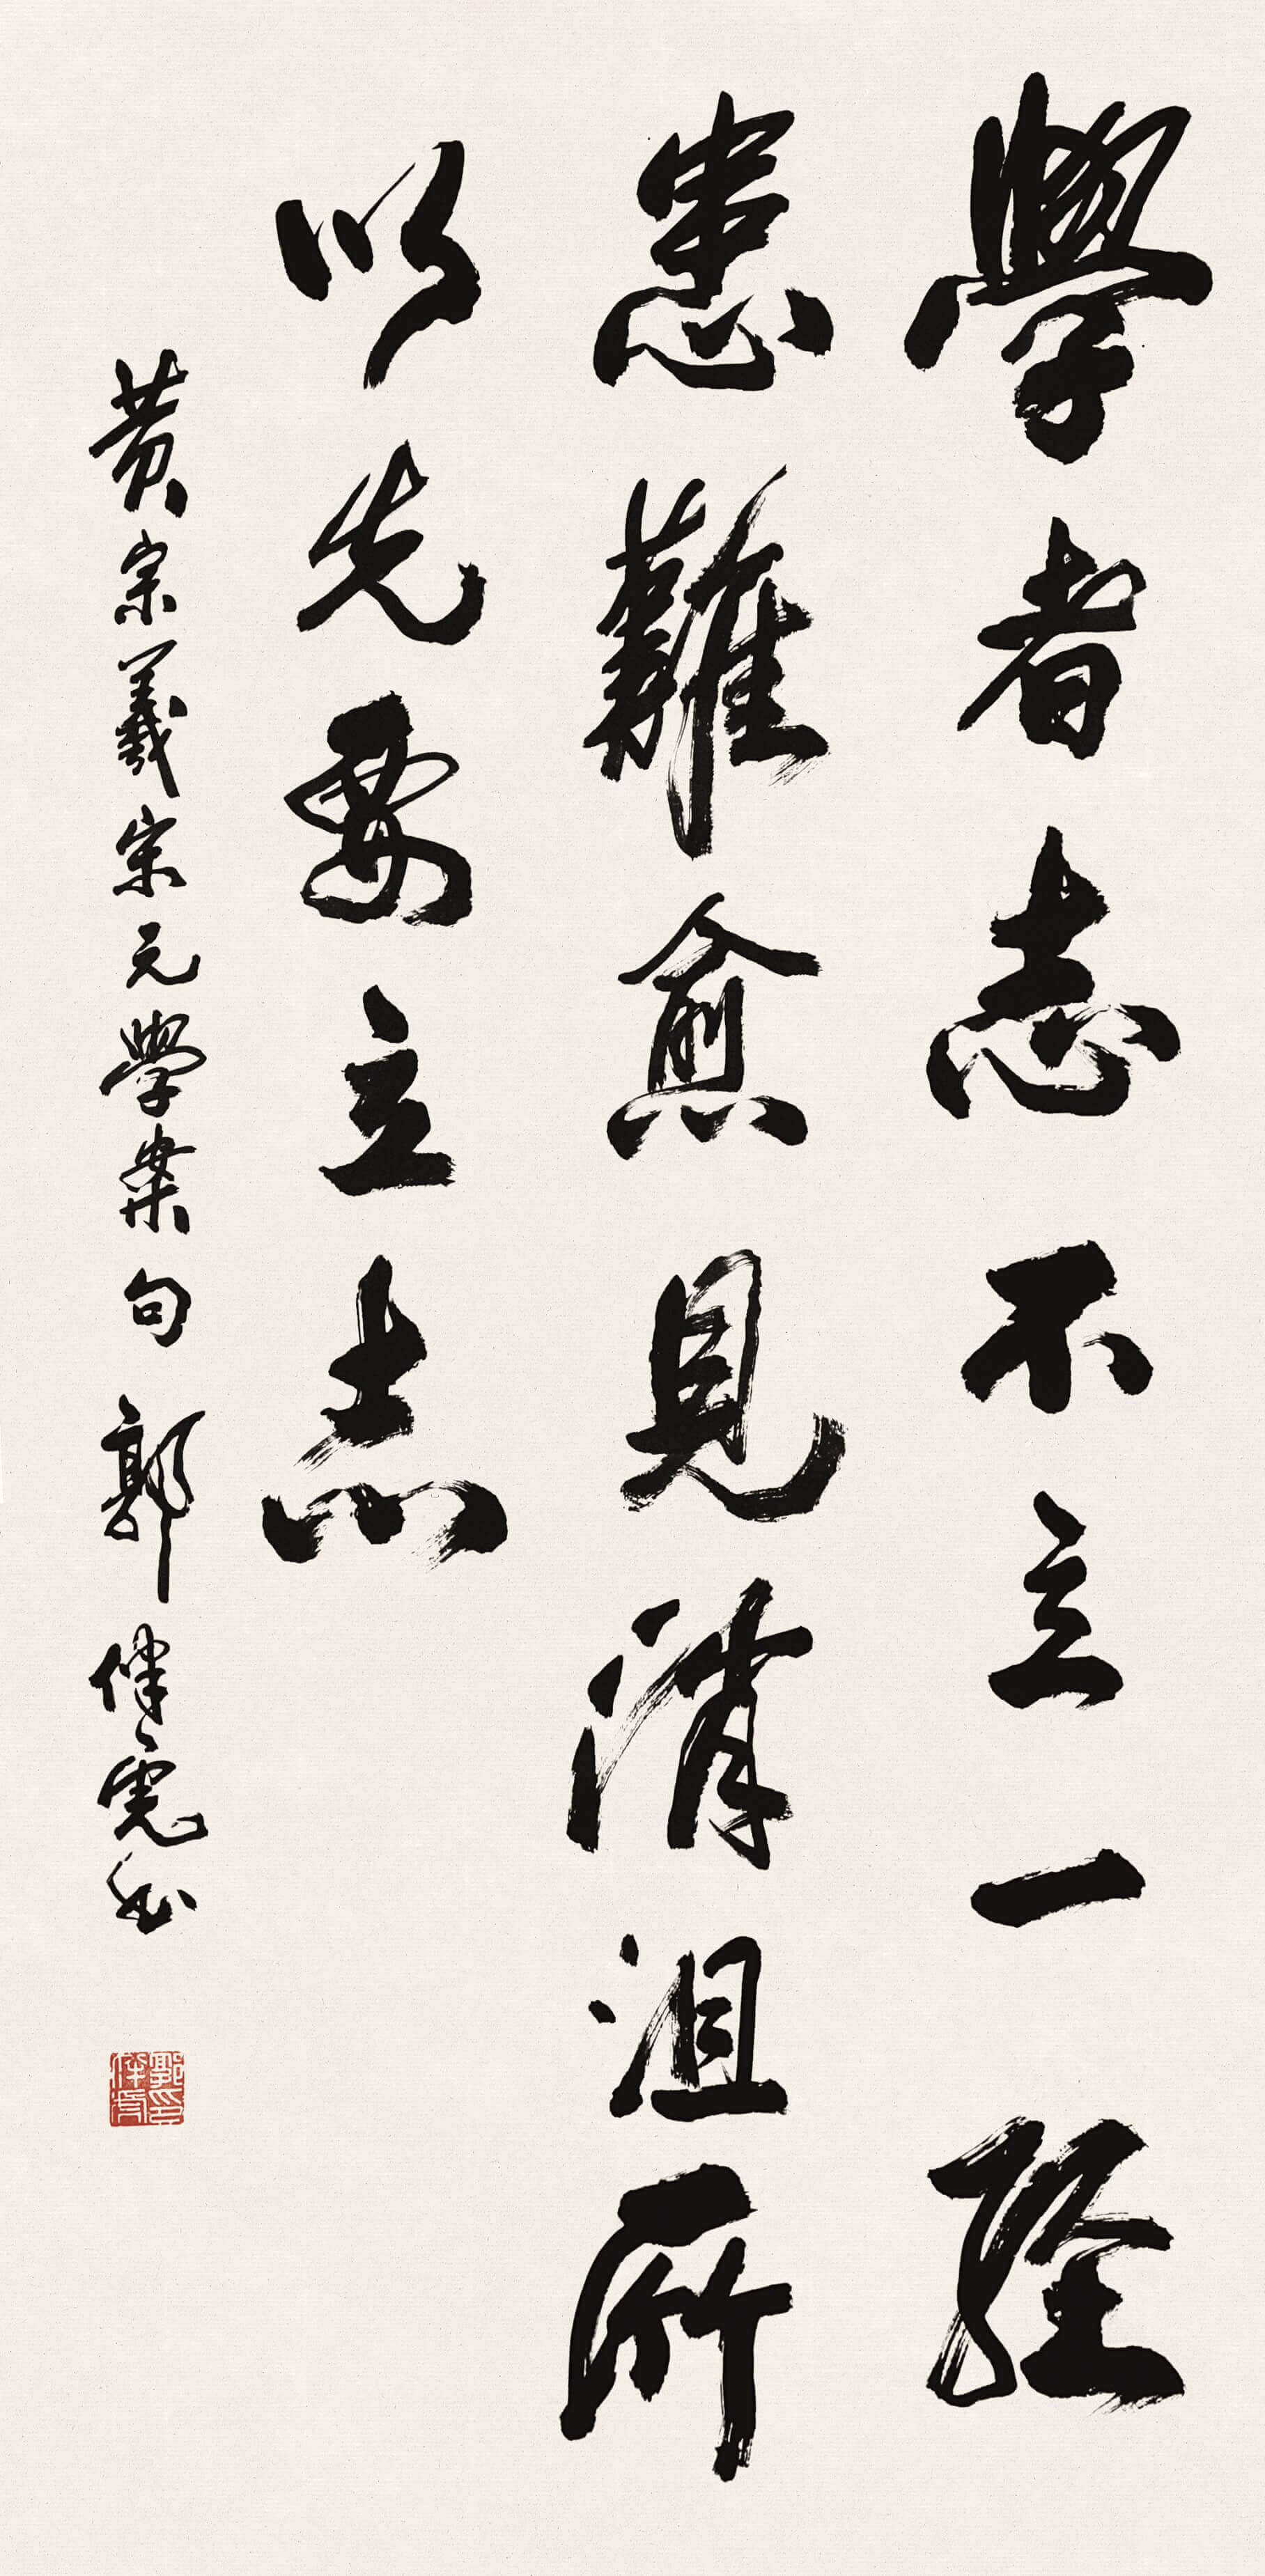 學者志不立一經
患難愈見消沮所
以先要立志
黄宗羲宋元學案句 郭伟書